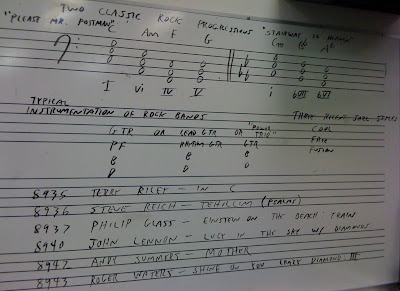 TWO CLASSIC ROCK PROGRESSIONS
"PLEASE MR. POSTMAN" "STAIRWAY TO HEAVEN"
C Am F G Cm Bb Ab
I vi IV V i bVII bVI
TYPICAL
INSTRUMENTATION OF ROCK BANDS THREE RECENT JAZZ STYLES
GTR OR LEAD GTR OR "POWER TRIO" COOL
PF RHYTHM GTR GTR FREE
B B B FUSION
D D D
8935 TERRY RILEY - IN C
8936 STEVE REICH - TEHILLIM (PSALMS)
8937 PHILIP GLASS - EINSTEIN ON THE BEACH: TRAIN
8940 JOHN LENNON - LUCY IN THE SKY W/ DIAMONDS
8942 ANDY SUMMERS - MOTHER
8943 ROGER WATERS - SHINE ON YOU CRAZY DIAMOND: III